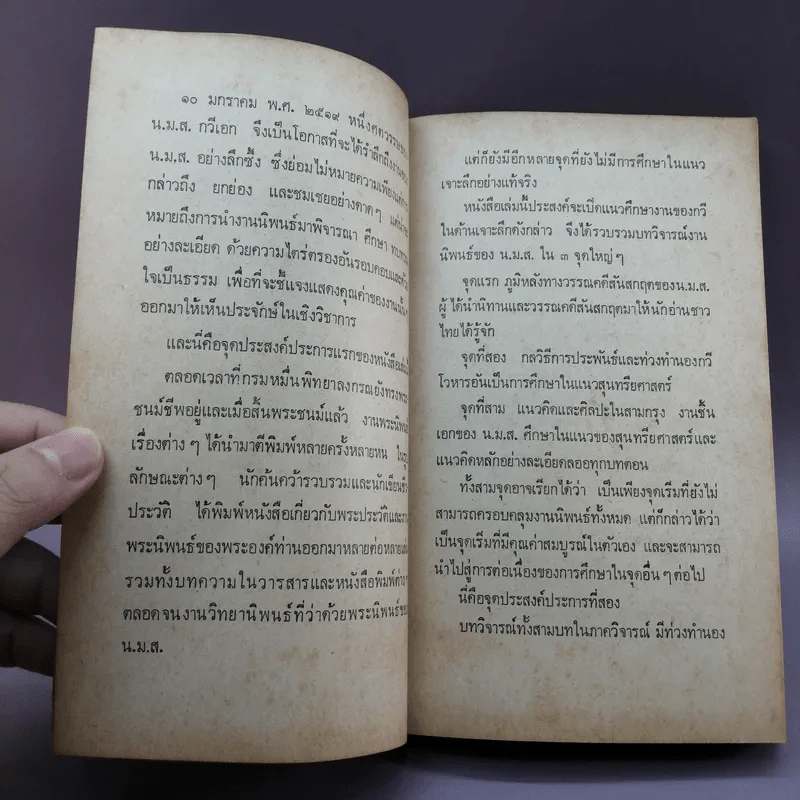 ๑๐ มกราคม พ.ศ. ๒๕๑๙ หนึ่งศตวรรษ
น.ม.ส. กวีเอก จึงเป็นโอกาสที่จะได้รำลึกถึง
น.ม.ส. อย่างลึกซึ้ง ซึ่งย่อมไม่หมายความเพียง
กล่าวถึง ยกย่อง และชมเชยอย่างดาดๆ
หมายถึงการนำงานนิพนธ์มาพิจารณา ศึกษา
อย่างละเอียด ด้วยความไตร่ตรองอันรอบคอบและ
ใจเป็นธรรม เพื่อที่จะชี้แจงแสดงคุณค่าของงาน
ออกมาให้เห็นประจักษ์ในเชิงวิชาการ
และนี่คือจุดประสงค์ประการแรกของหนังสือ
ตลอดเวลาที่กรมหมื่นพิทยาลงกรณยังทรงพระ
ชนม์ชีพอยู่และเมื่อสิ้นพระชนม์แล้ว งานพระนิพนธ์
เรื่องต่างๆ ได้นำมาตีพิมพ์หลายครั้งหลายหน ใน
ลักษณะต่างๆ นักค้นคว้ารวบรวมและนักเขียน
ประวัติ ได้พิมพ์หนังสือเกี่ยวกับพระประวัติและ
พระนิพนธ์ของพระองค์ท่านออกมาหลายต่อหลาย
รวมทั้งบทความในวารสารและหนังสือพิมพ์ต่างๆ
ตลอดจนงานวิทยานิพนธ์ที่ว่าด้วยพระนิพนธ์ของ
น.ม.ส.
แต่ก็ยังมีอีกหลายจุดที่ยังไม่มีการศึกษาในแนว
เจาะลึกอย่างแท้จริง
หนังสือเล่มนี้ประสงค์จะเปิดแนวศึกษางานของกวี
ในด้านเจาะลึกดังกล่าว จึงได้รวบรวมบทวิจารณ์งาน
นิพนธ์ของ น.ม.ส. ใน ๓ จุดใหญ่ๆ
จุดแรก ภูมิหลังทางวรรณคดีสันสกฤตของน.ม.ส.
ผู้ได้นำนิทานและวรรณคดีสันสกฤตมาให้นักอ่านชาว
ไทยได้รู้จัก
จุดที่สอง กลวิธีการประพันธ์และท่วงทำนองกวี
โวหารอันเป็นการศึกษาในแนวสุนทรียศาสตร์
จุดที่สาม แนวคิดและศิลปะในสามกรุง งานชิ้น
เอกของ น.ม.ส. ศึกษาในแนวของสุนทรียศาสตร์และ
แนวคิดหลักอย่างละเอียดลออทุกบทตอน
ทั้งสามจุดอาจเรียกได้ว่า เป็นเพียงจุดเริ่มที่ยังไม่
สามารถครอบคลุมงานนิพนธ์ทั้งหมด แต่ก็กล่าวได้ว่า
เป็นจุดเริ่มที่มีคุณค่าสมบูรณ์ในตัวเอง และจะสามารถ
นำไปสู่การต่อเนื่องของการศึกษาในจุดอื่นๆต่อไป
นี่คือจุดประสงค์ประการที่สอง
บทวิจารณ์ทั้งสามบทในภาควิจารณ์ มีท่วงทำนอง